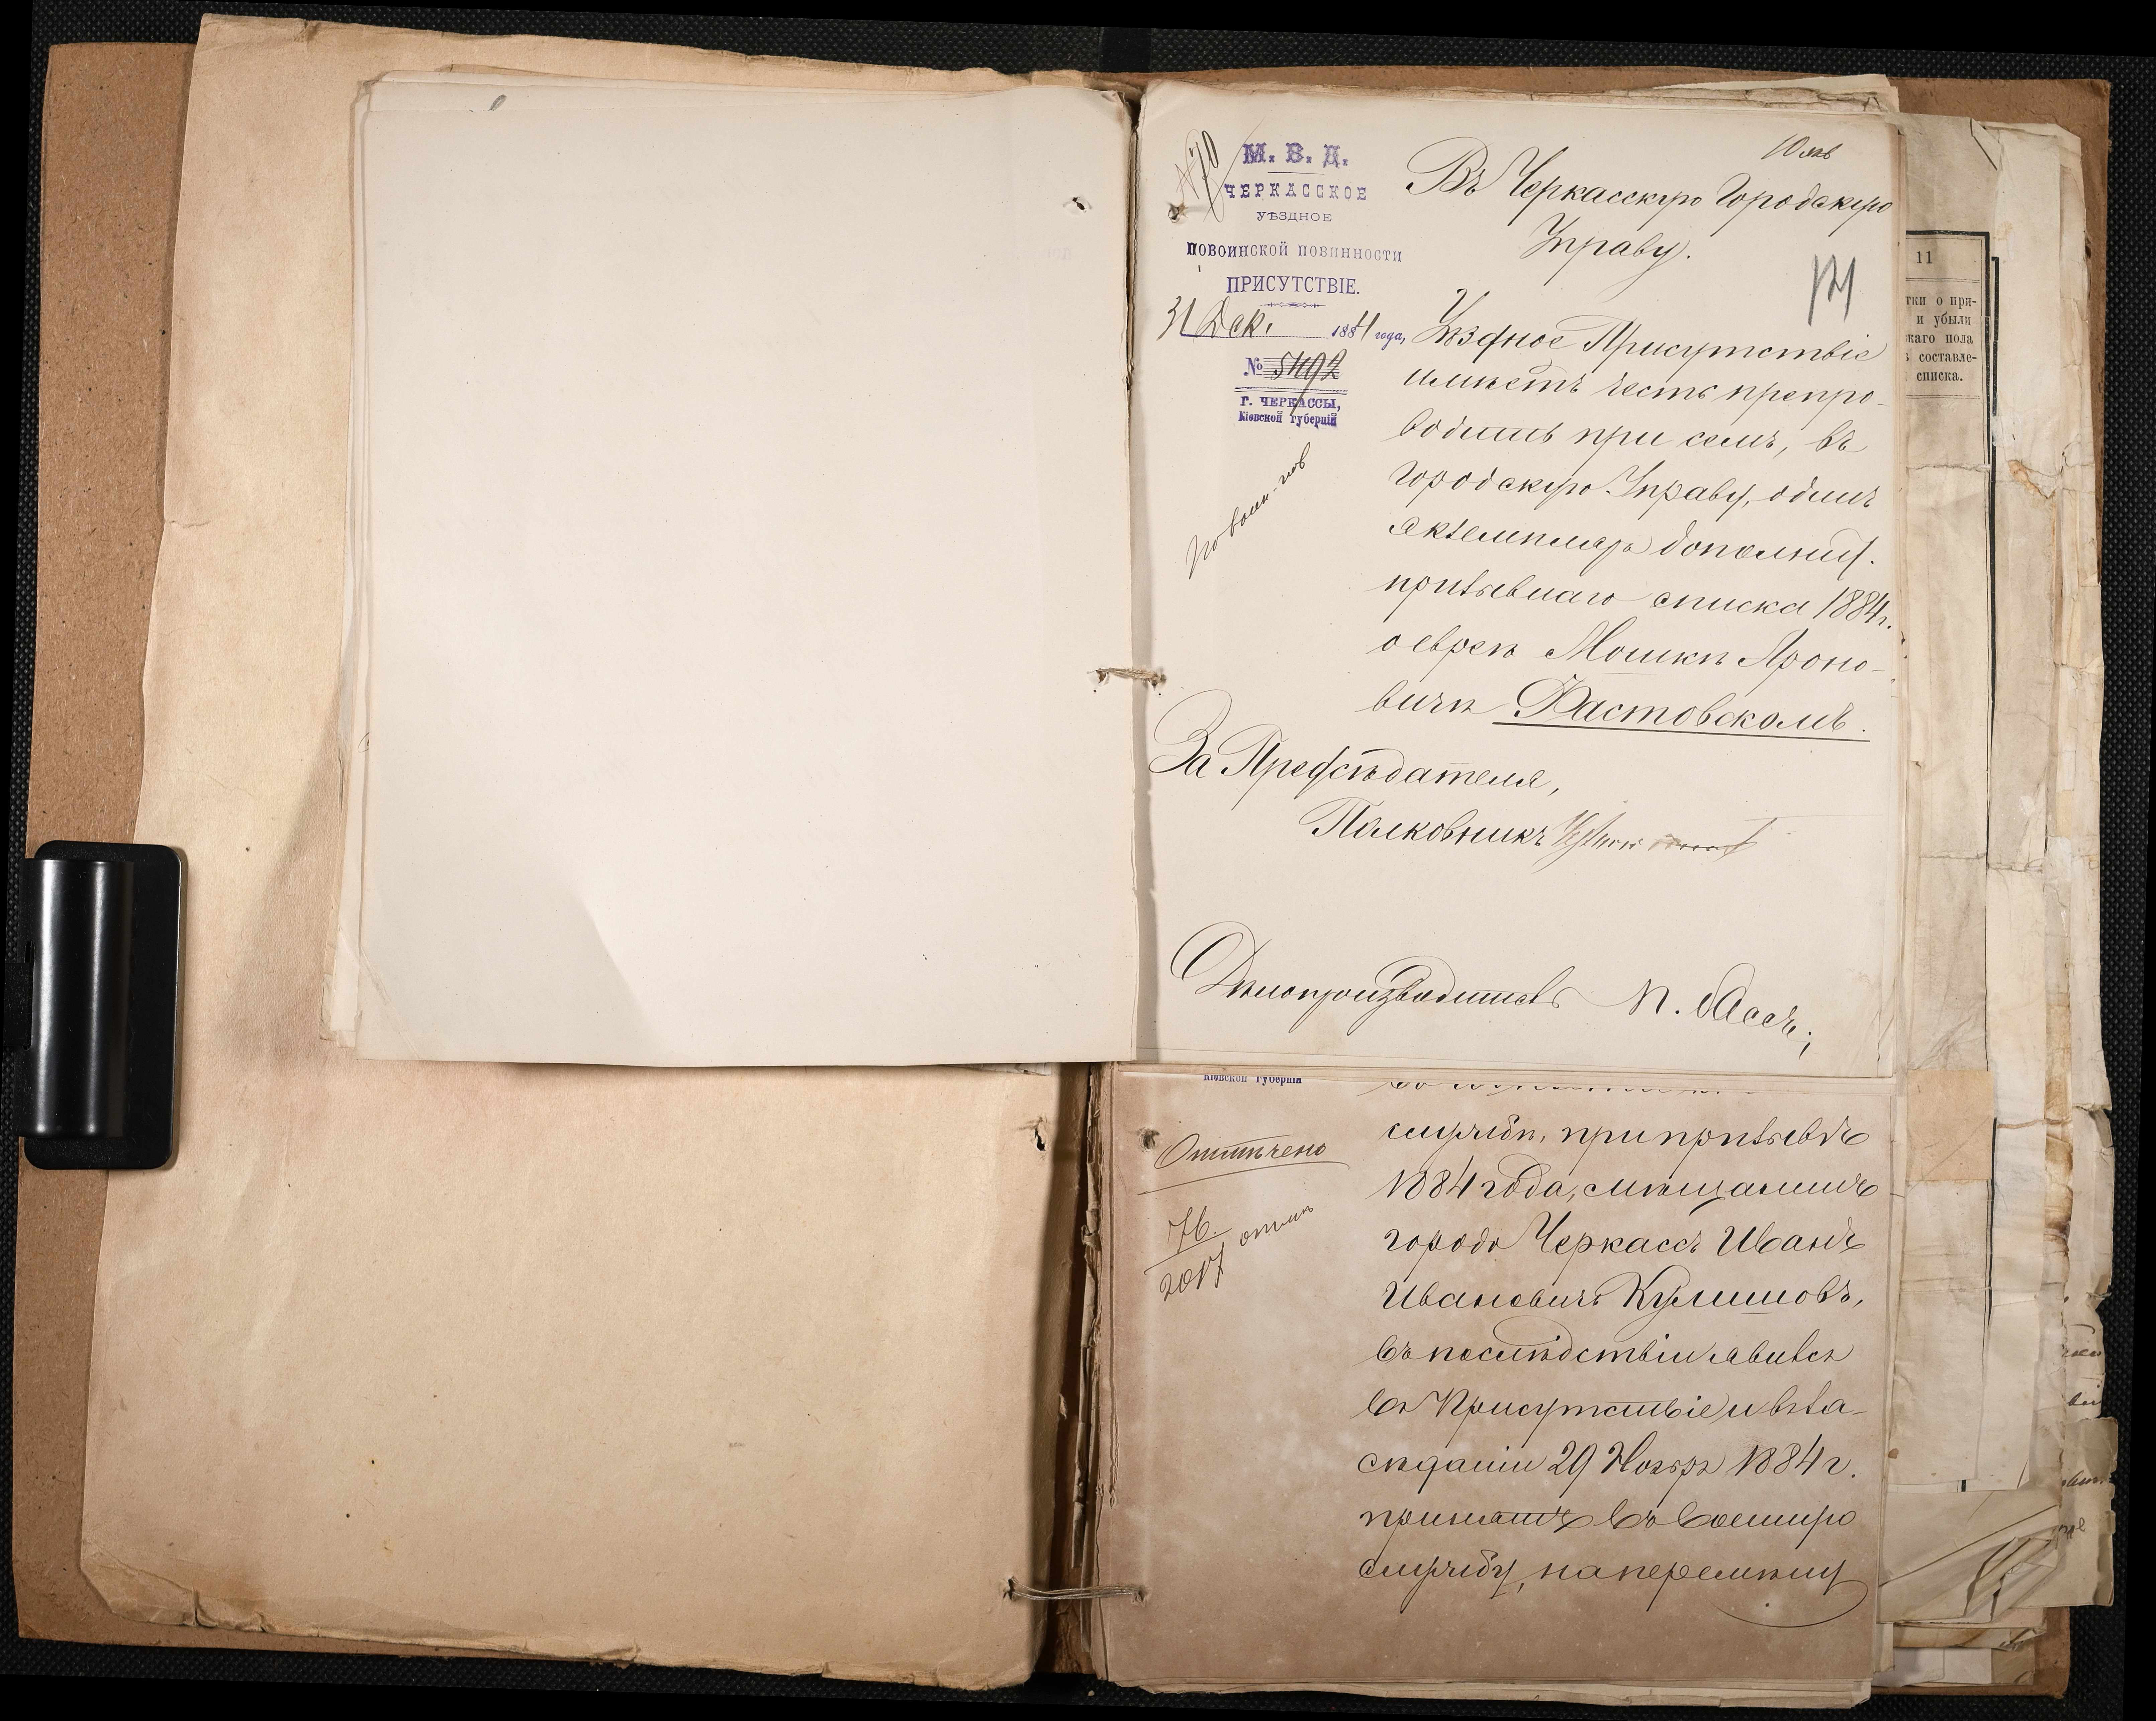 № 70
М. В. Д.
ЧЕРКАССКОЕ
УѢЗДНОЕ
ПОВОИНСКОЙ ПОВИННОСТИ
ПРИСУТСТВІЕ.
31 Дек. 1884 года,
№ 5492
Г. ЧЕРКАССЫ,
Кіевской губерніи
10 янв
Въ Черкасскую Городскую
Управу.
121
Уѣздное Присутствіе
имѣетъ честь препро-
водить при семъ, въ
Городскую Управу, одинъ
экземпляръ дополнит.
призывнаго списка 1884 г.
о евреѣ Мошкѣ Ароно-
вичѣ Фастовскомъ.
За Предсѣдателя,
Полковникъ
Дѣлопроизводитель
Кіевской губерніи
Отмѣчено
76.
2017
службѣ, при призывѣ
1884 года, мѣщанинъ
города Черкассъ Иванъ
Ивановичъ Кулишовъ,
въ послѣдствіи явился
въ Присутствіе и въ за-
сѣданіи 29 Ноября 1884 г.
принятъ въ военную
службу, на перемѣну
11
тки о при-
и убыли
скаго пола
ъ составле-
списка.